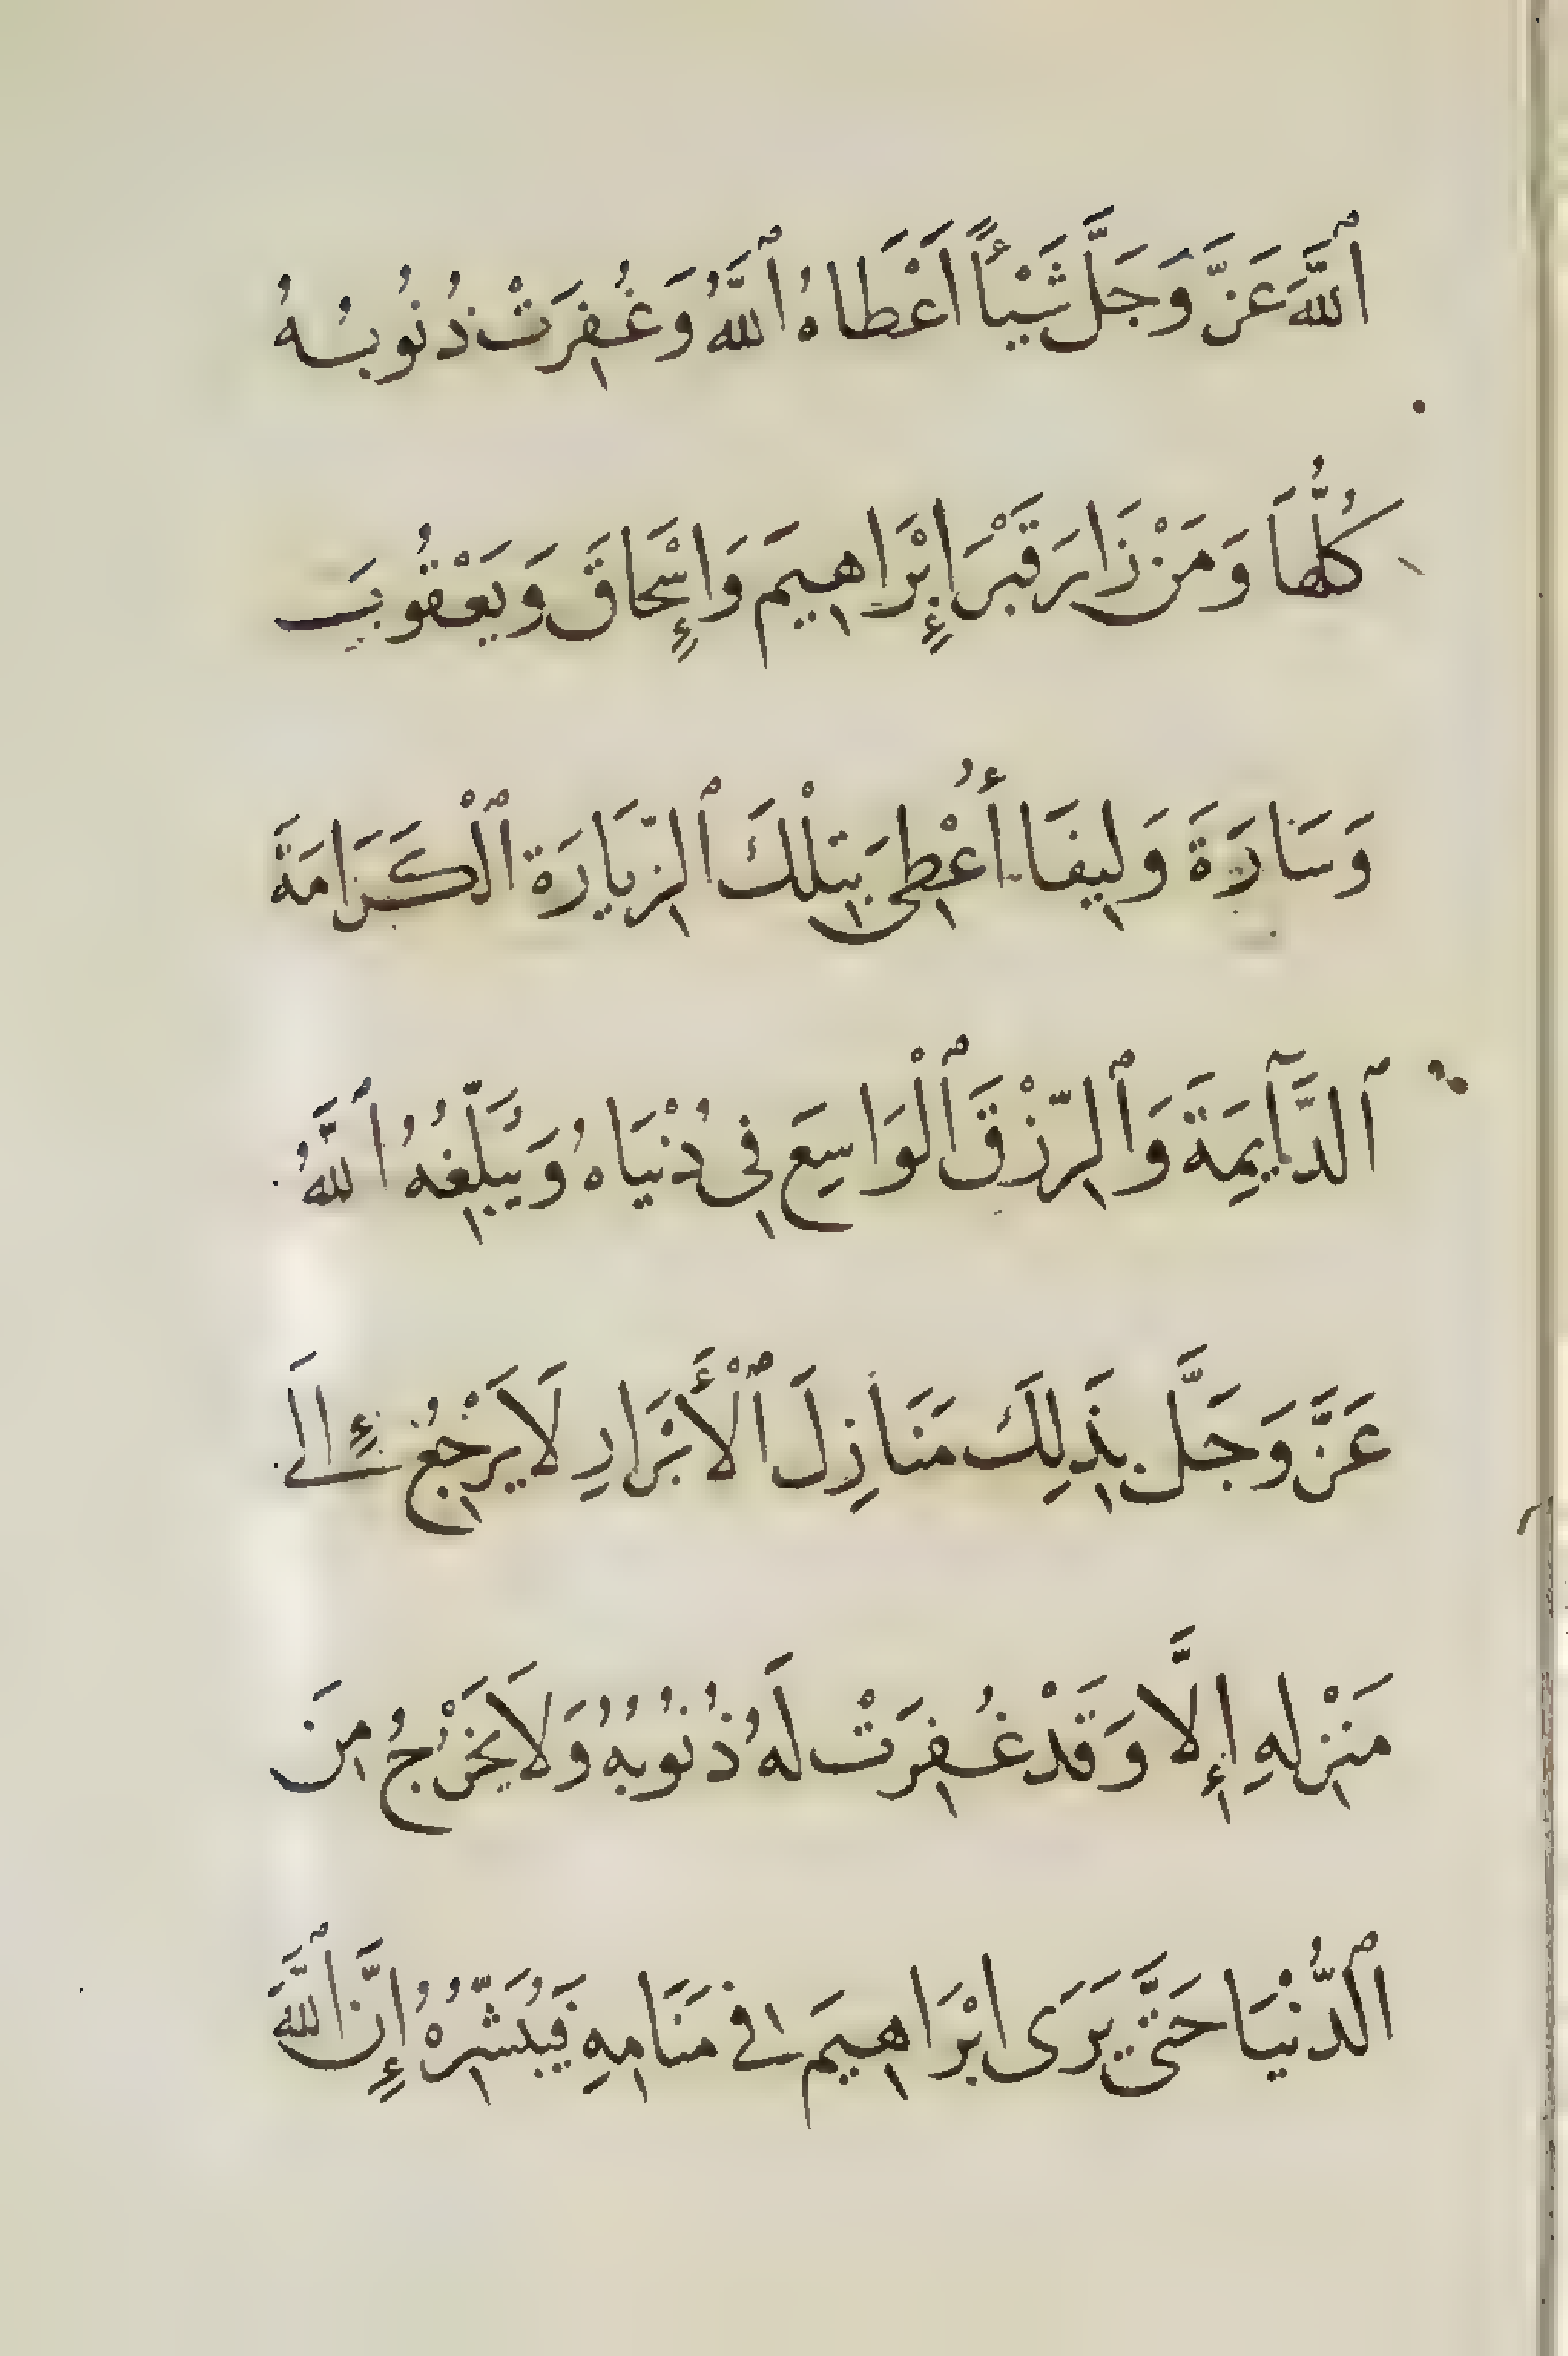 ٱللَّهَ عَزَّ وَجَلَّ شَيْئًا أَعْطَاهُ ٱللَّهُ وَغُفِرَتْ ذُنُوبُهُ
كُلُّهَا وَمَنْ زَارَ قَبْرَ إِبْرَاهِيمَ وَإِسْحَاقَ وَيَعْقُوبَ
وَسَارَةَ وَلِيفَا أُعْطِىَ بِتِلْكَ ٱلزِّيَارَةِ ٱلْكَرَامَةَ
ٱلدَّآيِمَةَ وَٱلرِّزْقَ ٱلْوَاسِعَ فِى دُنْيَاهُ وَيُبَلِّغُهُ ٱللَّهُ
عَزَّ وَجَلَّ بِذَلِكَ مَنَازِلَ ٱلْأَبْرَارِ لَا يَرْجِعُ إِلَى
مَنْزِلِهِ إِلَّا وَقَدْ غُفِرَتْ لَهُ ذُنُوبُهُ وَلَا يَخْرُجُ مِنَ
ٱلدُّنْيَا حَتَّى يَرَى إبْرَاهِيمَ فِي مَنَامِهِ فَيُبَشِّرُهُ إِنَّ ٱللَّهَ